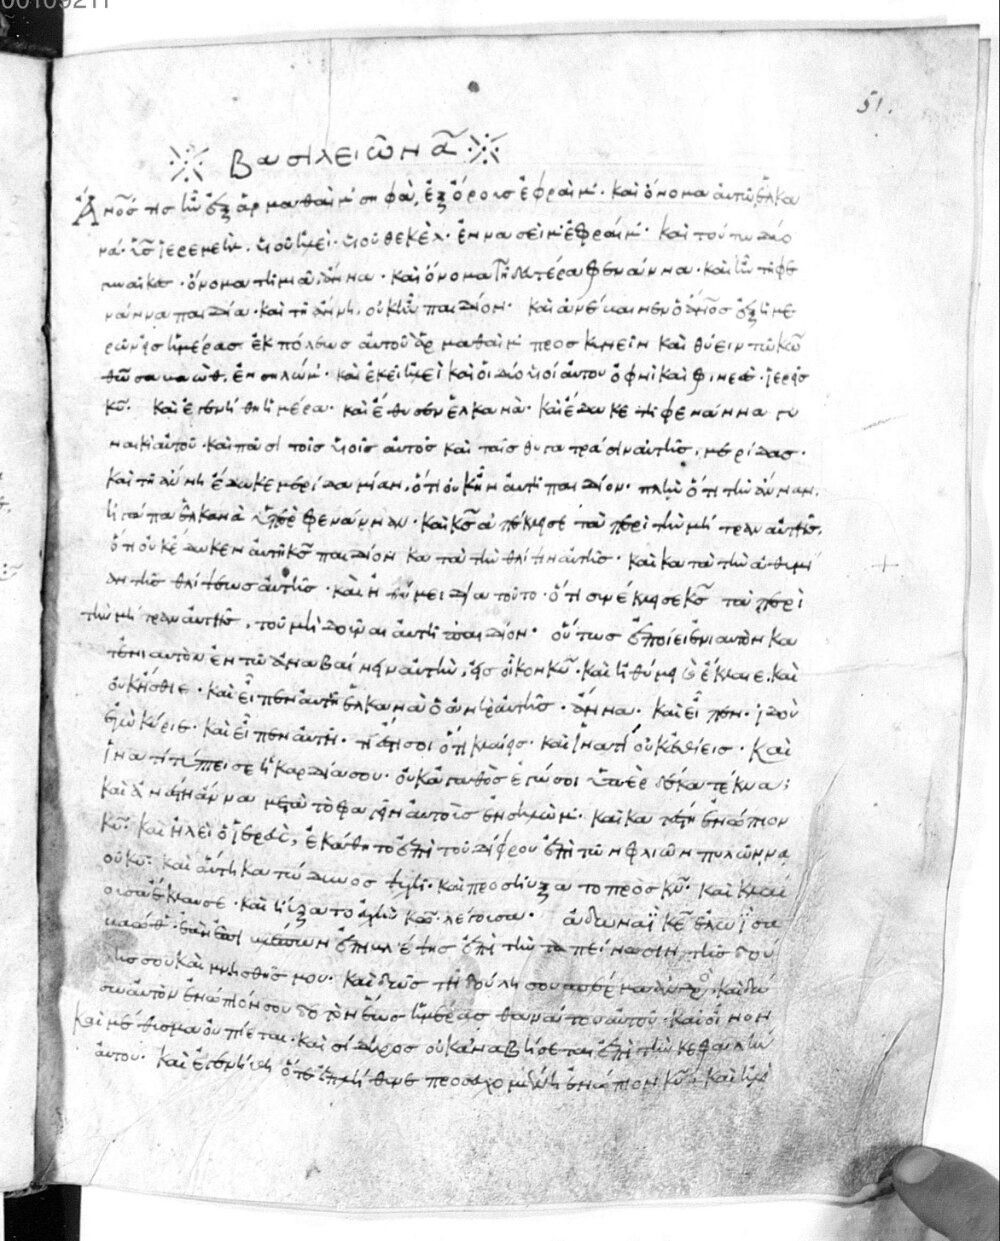 00109211
51.
Βασιλειῶν α̅
Ἄν̅ο̅ς τις ἦν ἐξ ἀρμαθαὶμ σηφὰ, ἐξ ὄρους ἐφραὶμ· καὶ ὄνομα αὐτῶ ἑλκα
νά· υἱ̅ς ἱερεμεὴλ· υἱοῦ ἠλεί· υἱοῦ θεκέλ· ἐν νασεὶμ ἐφραίμ· καὶ τούτω δύο
γυναῖκες· ὄνομα τῆ μιᾶ, ἄννα· καὶ ὄνομα τῆ δευτέρα φενάννα· καὶ ἦν τῆ φε
νάννα παιδία· καὶ τῆ ἄννη, οὐκ ἦν παιδίον· καὶ ἀνέβαινεν ὁ ἄν̅ο̅ς ἐξ ἡμε
ρῶν εἰς ἡμέρας ἐκ πόλεως αὐτοῦ ἀρμαθαὶμ προσκυνεῖν καὶ θύειν τῶ κ̅ω̅
θ̅ω̅ σαβαὼθ, ἐν σηλώμ· καὶ ἐκεῖ ἠλεὶ καὶ οἱ δύο υἱοὶ αὐτοῦ ὀφνὶ καὶ φινεὲς· ἱερεῖς
κ̅υ̅· καὶ ἐγενήθη ἡμέρα· καὶ ἔθυσεν ἑλκανὰ· καὶ ἔδωκε τῆ φενάννα γυ
ναικὶ αὐτοῦ· καὶ πᾶσι τοῖς υἱοῖς αὐτῆς καὶ ταῖς θυγατράσιν αὐτῆς, μερίδας·
καὶ τῆ ἄννη ἔδωκε μερίδα μίαν, ὅτι οὐκ ἦν αὐτῆ παιδίον· πλὴν ὅτι τὴν ἄνναν,
ἠγάπα ἑλκανὰ ὑπὲρ φενάνναν· καὶ κ̅ς̅ ἀπέκλεισε τὰ περὶ τὴν μήτραν αὐτῆς,
ὅτι οὐκ ἔδωκεν αὐτῆ κ̅ς̅ παιδίον κατὰ τὴν θλίψιν αὐτῆς· καὶ κατὰ τὴν ἀθυμί
αν τῆς θλίψεως αὐτῆς· καὶ ἠθύμει διὰ τοῦτο· ὅτι συνέκλεισε κ̅ς̅ τὰ περὶ
τὴν μήτραν αὐτῆς, τοῦ μὴ δοῦναι αὐτῆ παιδίον· οὕτως ἐποίει ἐνιαυτὸν κα
τ' ἐνιαυτὸν ἐν τῶ ἀναβαίνειν αὐτὴν, εἰς οἶκον κ̅υ̅· καὶ ἠθύμει καὶ ἔκλαιε. καὶ
οὐκ ἤσθιε· καὶ εἶπεν αὐτῆ ἑλκανὰ ὁ ἀνὴρ αὐτῆς· ἄννα· καὶ εἶπεν· ἰδοὺ
ἐγὼ κύριε· καὶ εἶπεν αὐτῆ· τί ἐστί σοι ὅτι κλαίεις· καὶ ἵνα τί οὐκ ἐσθίεις· καὶ
ἵνα τί τύπτει σε ἡ καρδία σου· οὐκ ἀγαθὸς ἐγώ σοι ὑπὲρ δέκα τέκνα;
καὶ ἀνέστη ἄννα μετὰ τὸ φαγεῖν αὐτοῖς ἐν σηλώμ· καὶ κατέστη ἐνώπιον
κ̅υ̅· καὶ ἠλεὶ ὁ ἱερεὺς, ἐκάθητο ἐπὶ τοῦ δίφρου ἐπὶ τῶν φλιῶν πυλῶν ναοῦ
κ̅υ̅· καὶ αὐτὴ κατώδυνος ψυχῆ· καὶ προσηύξατο πρὸς κ̅ν̅· καὶ κλαί
ουσα ἔκλαυσε· καὶ ηὔξατο εὐχὴν κ̅ω̅ λέγουσα· ἀδωναῒ κ̅ε̅ ἐλωῒ σα
βαώθ· ἐὰν ἐπιβλέπων ἐπιβλέψης ἐπὶ τὴν ταπείνωσιν τῆς δού
λης σου καὶ μνησθῆς μου· καὶ δῶς τῆ δούλη σου σπέρμα ἀνδρὸς· καὶ δώ
σω αὐτὸν ἐνώπιόν σου δοτὸν ἕως ἡμέρας θανάτου αὐτοῦ· καὶ οἶνον
καὶ μέθυσμα οὐ πίεται· καὶ σίδηρος οὐκ ἀναβήσεται ἐπὶ τὴν κεφαλὴν
αὐτοῦ· καὶ ἐγενήθη ὅτε ἐπλήθυνε προσευχομένη ἐνώπιον κ̅υ̅· καὶ ἠλεὶ